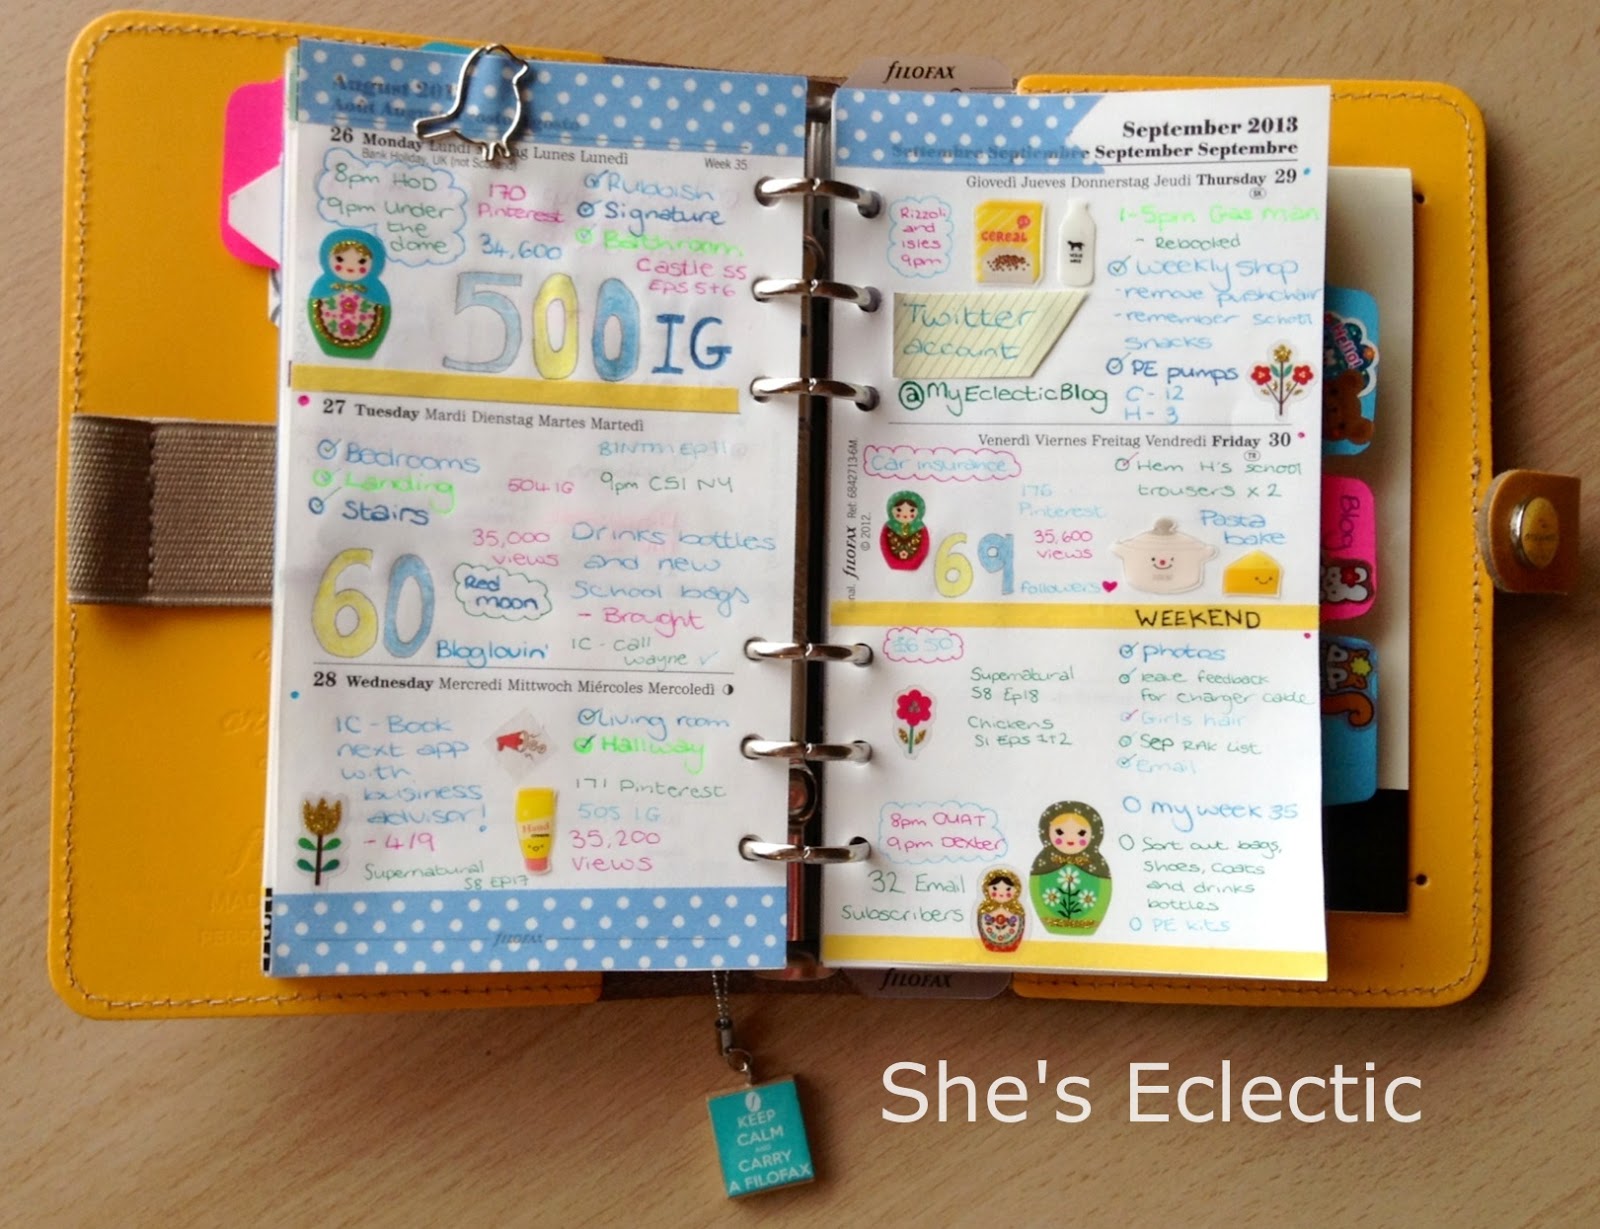 August 201
26 Monday Lundi Lunes Lunedì
Bank Holiday, UK (not Sco
Week 35
8pm HoD
9pm Under
the
dome
170
Pinterest
34,600
Rubbish
Signature
Bathroom
Castle S5
EPS 5+6
500 IG
27 Tuesday Mardi Dienstag Martes Martedì
Bedrooms
Landing
Stairs
504 IG
9pm CSI NY
35,000
views
Drinks bottles
and new
School bags
- Brought
60
Bloglovin'
Red
moon
IC - Call
Wayne ✓
28 Wednesday Mercredi Mittwoch Miércoles Mercoledì
IC - Book
next app
with
business
advisor!
- 4/9
Supernatural
S8 EP17
Living room
Hallway
171 Pinterest
505 IG
35,200
views
Hand
FILOFAX
FILOFAX
September 2013
Settembre Septiembre September Septembre
Giovedì Jueves Donnerstag Jeudi Thursday 29
Rizzoli
and
Isles
9pm
CEREAL
1-5pm Gas man
- Rebooked
Weekly shop
- remove pushchair
- remember school
snacks
PE pumps
C - 12
H - 3
Twitter
account
@MyEclecticBlog
FILOFAX Ref: 6842713-6M
© 2012.
Venerdì Viernes Freitag Vendredi Friday 30
Car insurance
Hem H's school
trousers x 2
176
Pinterest
35,600
views
69
followers
Pasta
bake
WEEKEND
£6.50
Supernatural
S8 Ep18
Chickens
S1 EPS 1+2
photos
leave feedback
for charger cable
Girls hair
Sep RAK List
Email
8pm OUAT
9pm Dexter
32 Email
Subscribers
My week 35
Sort out bags,
Shoes, Coats
and drinks
bottles
PE kits
Hello!
Blog
FILOFAX
KEEP
CALM
AND
CARRY
A FILOFAX
She's Eclectic